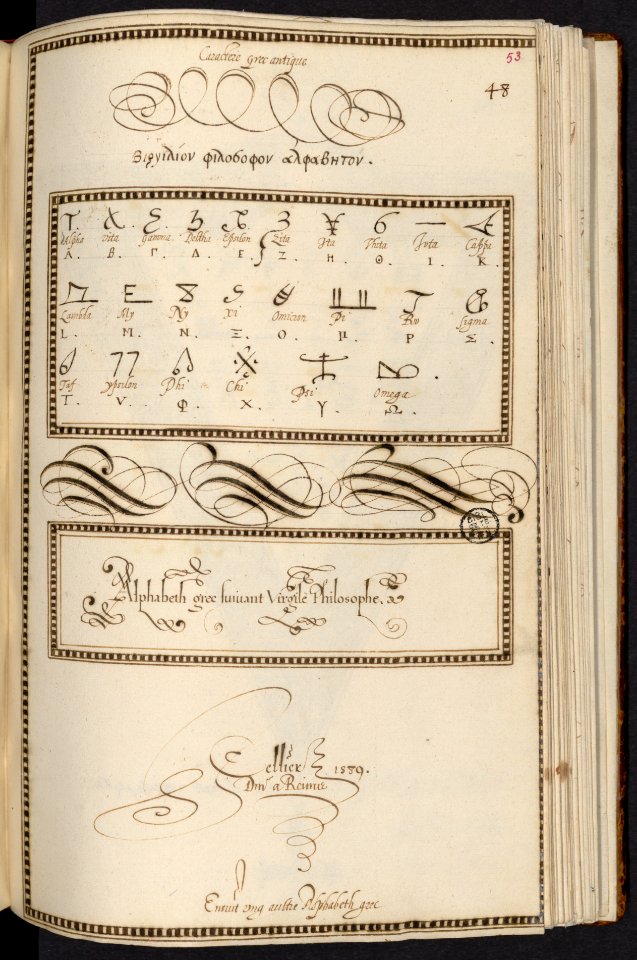 Caractere grec antique
53
48
Βιργιλίον φιλοσοφον αλφαβητον.
Alpha vita Gamma Deltha Epsilon Zita Ita Thita Jota Cappa
Α. Β. Γ. Δ. Ε. Ζ. Η. Θ. Ι. Κ.
Lambda My Ny Xi Omicron Pi Ro Sigma
L. M. N. Ξ. Ο. Ρ. Σ.
Taf ypsilon Phi Chi Psi Omega
Τ. V. Φ. Χ. Υ. Ω.
Alphabeth grec suiuant Virgile Philosophe.
Cellier 1589.
Dmt a Reims
Ensuit vng aultre Alphabeth grec